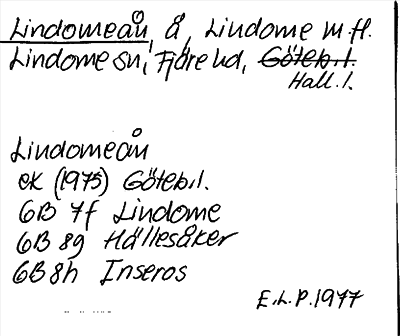 Lindomeån, å, Lindome m fl.
Lindome sn, Fjäre hd, Göteb. l.
Hall. l.
Lindomeån
ek (1975) Göteb. l.
6B 7f Lindome
6B 8g Hällesåker
6B 8h Inseros
E.L.P. 1977